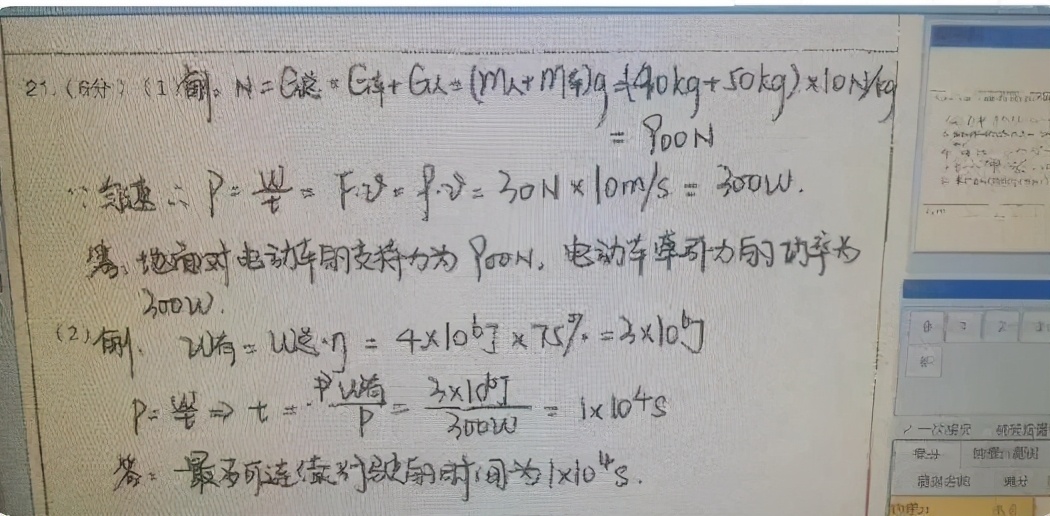 21.(6分)(1)解: N=G总=G车+G人=(m人+m车)g=(40kg+50kg)×10N/kg
=900N
∵匀速∴P=W/t=F·v=f·v=30N×10m/s=300W.
答:地面对电动车的支持力为900N,电动车牵引力的功率为
300W.
(2)解. W有=W总·η=4×10⁶J×75%=3×10⁶J
P=W/t⇒t=W有/P=3×10⁶J/300W=1×10⁴s
答:最多可连续行驶的时间为1×10⁴s.